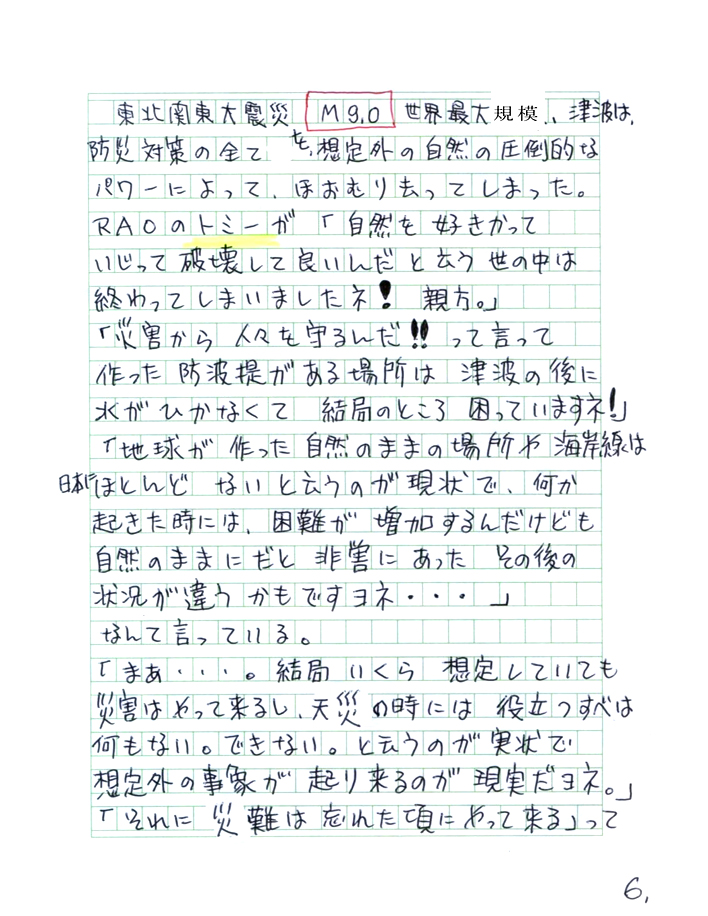 東北関東大震災 M9.0 世界最大規模、津波は、
防災対策の全てを、想定外の自然の圧倒的な
パワーによって、ほおむり去ってしまった。
RAOのトミーが「自然を好きかって
いじって破壊して良いんだと云う世の中は
終わってしまいましたネ! 親方。」
「災害から人々を守るんだ!!って言って
作った防波堤がある場所は津波の後に
水がひかなくて 結局のところ困っていますネ!」
「地球が作った自然のままの場所や海岸線は
日本にほとんど ないと云うのが現状で、何か
起きた時には、困難が増加するんだけども
自然のままにだと非害にあった その後の
状況が違うかもですヨネ・・・」
なんて言っている。
「まあ・・・。結局 いくら 想定していても
災害はやって来るし、天災の時には役立つすべは
何もない。できない。と云うのが実状で
想定外の事象が起り来るのが現実だヨネ。」
「それに災難は忘れた頃にやって来る」って
6.